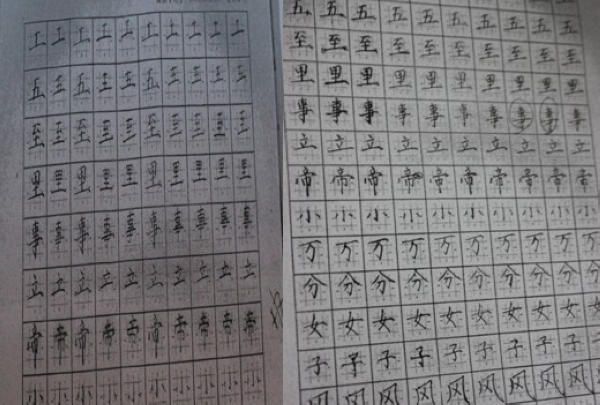 工工工工工工工工工工
五五五五五五五五五五
至至至至至至至至至至
里里里里里里里里里里
事事事事事事事事事事
立立立立立立立立立立
帝帝帝帝帝帝帝帝帝帝
小小小小小小小小小小
五五五五五五五五五五
至至至至至至至至至至
里里里里里里里里里里
事事事事事事事事事事
立立立立立立立立立立
帝帝帝帝帝帝帝帝帝帝
小小小小小小小小小小
万万万万万万万万万万
分分分分分分分分分分
女女女女女女女女女女
子子子子子子子子子子
风风风风风风风风风风